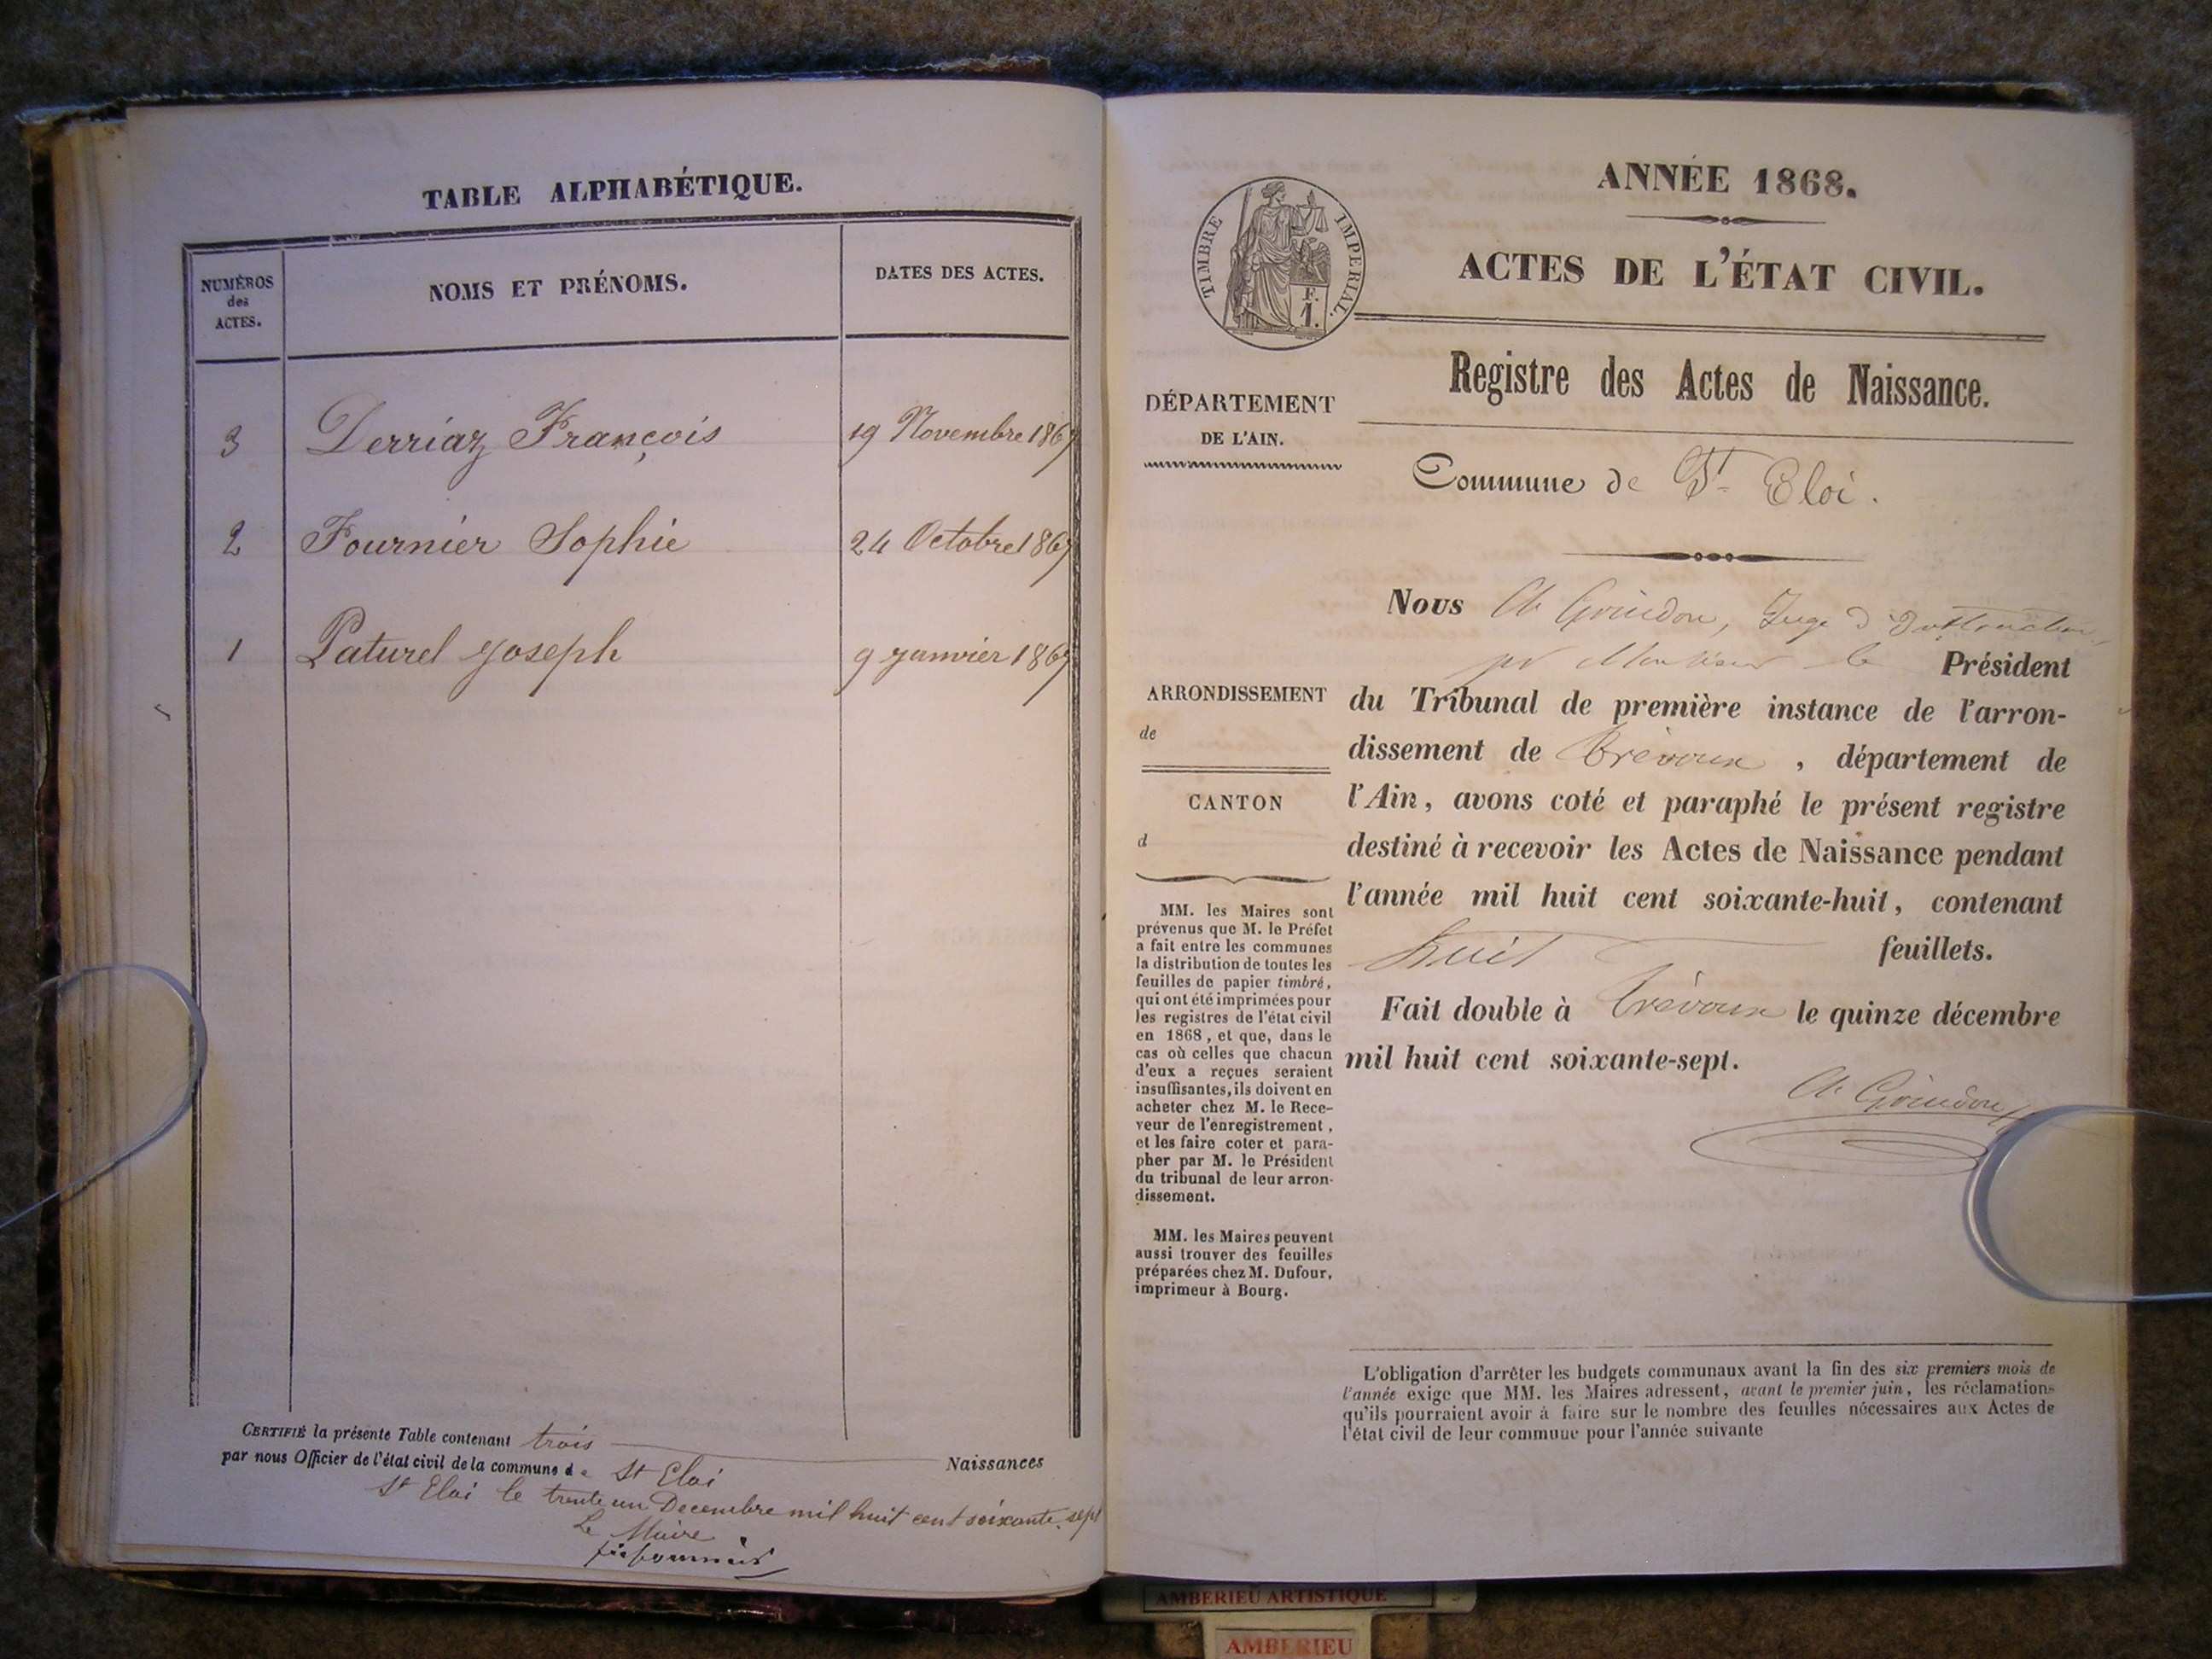 TABLE ALPHABÉTIQUE.
NUMÉROS des ACTES.
NOMS ET PRÉNOMS.
DATES DES ACTES.
3 Derriaz François 19 Novembre 1867
2 Fournier Sophie 24 Octobre 1867
1 Paturel Joseph 9 Janvier 1867
CERTIFIÉ la présente Table contenant trois Naissances
par nous Officier de l'état civil de la commune de St Eloi
St Eloi le trente un Decembre mil huit cent soixante-sept
Le Maire
ANNÉE 1868.
ACTES DE L'ÉTAT CIVIL.
TIMBRE IMPERIAL.
F.
1.
Registre des Actes de Naissance.
DÉPARTEMENT
DE L'AIN.
Commune de St Eloi.
Nous Ch Goindon, Juge d'Instruction,
pr Monsieur le Président
ARRONDISSEMENT
de
du Tribunal de première instance de l'arron-
dissement de Trévoux, département de
l'Ain, avons coté et paraphé le présent registre
destiné à recevoir les Actes de Naissance pendant
l'année mil huit cent soixante-huit, contenant
huit feuillets.
Fait double à Trévoux le quinze décembre
mil huit cent soixante-sept.
Ch Goindon
CANTON
d
MM. les Maires sont
prévenus que M. le Préfet
a fait entre les communes
la distribution de toutes les
feuilles de papier timbré,
qui ont été imprimées pour
les registres de l'état civil
en 1868, et que, dans le
cas où celles que chacun
d'eux a reçues seraient
insuffisantes, ils doivent en
acheter chez M. le Rece-
veur de l'enregistrement,
et les faire coter et para-
pher par M. le Président
du tribunal de leur arron-
dissement.
MM. les Maires peuvent
aussi trouver des feuilles
préparées chez M. Dufour,
imprimeur à Bourg.
L'obligation d'arrêter les budgets communaux avant la fin des six premiers mois de
l'année exige que MM. les Maires adressent, avant le premier juin, les réclamations
qu'ils pourraient avoir à faire sur le nombre des feuilles nécessaires aux Actes de
l'état civil de leur commune pour l'année suivante
AMBERIEU ARTISTIQUE
AMBERIEU